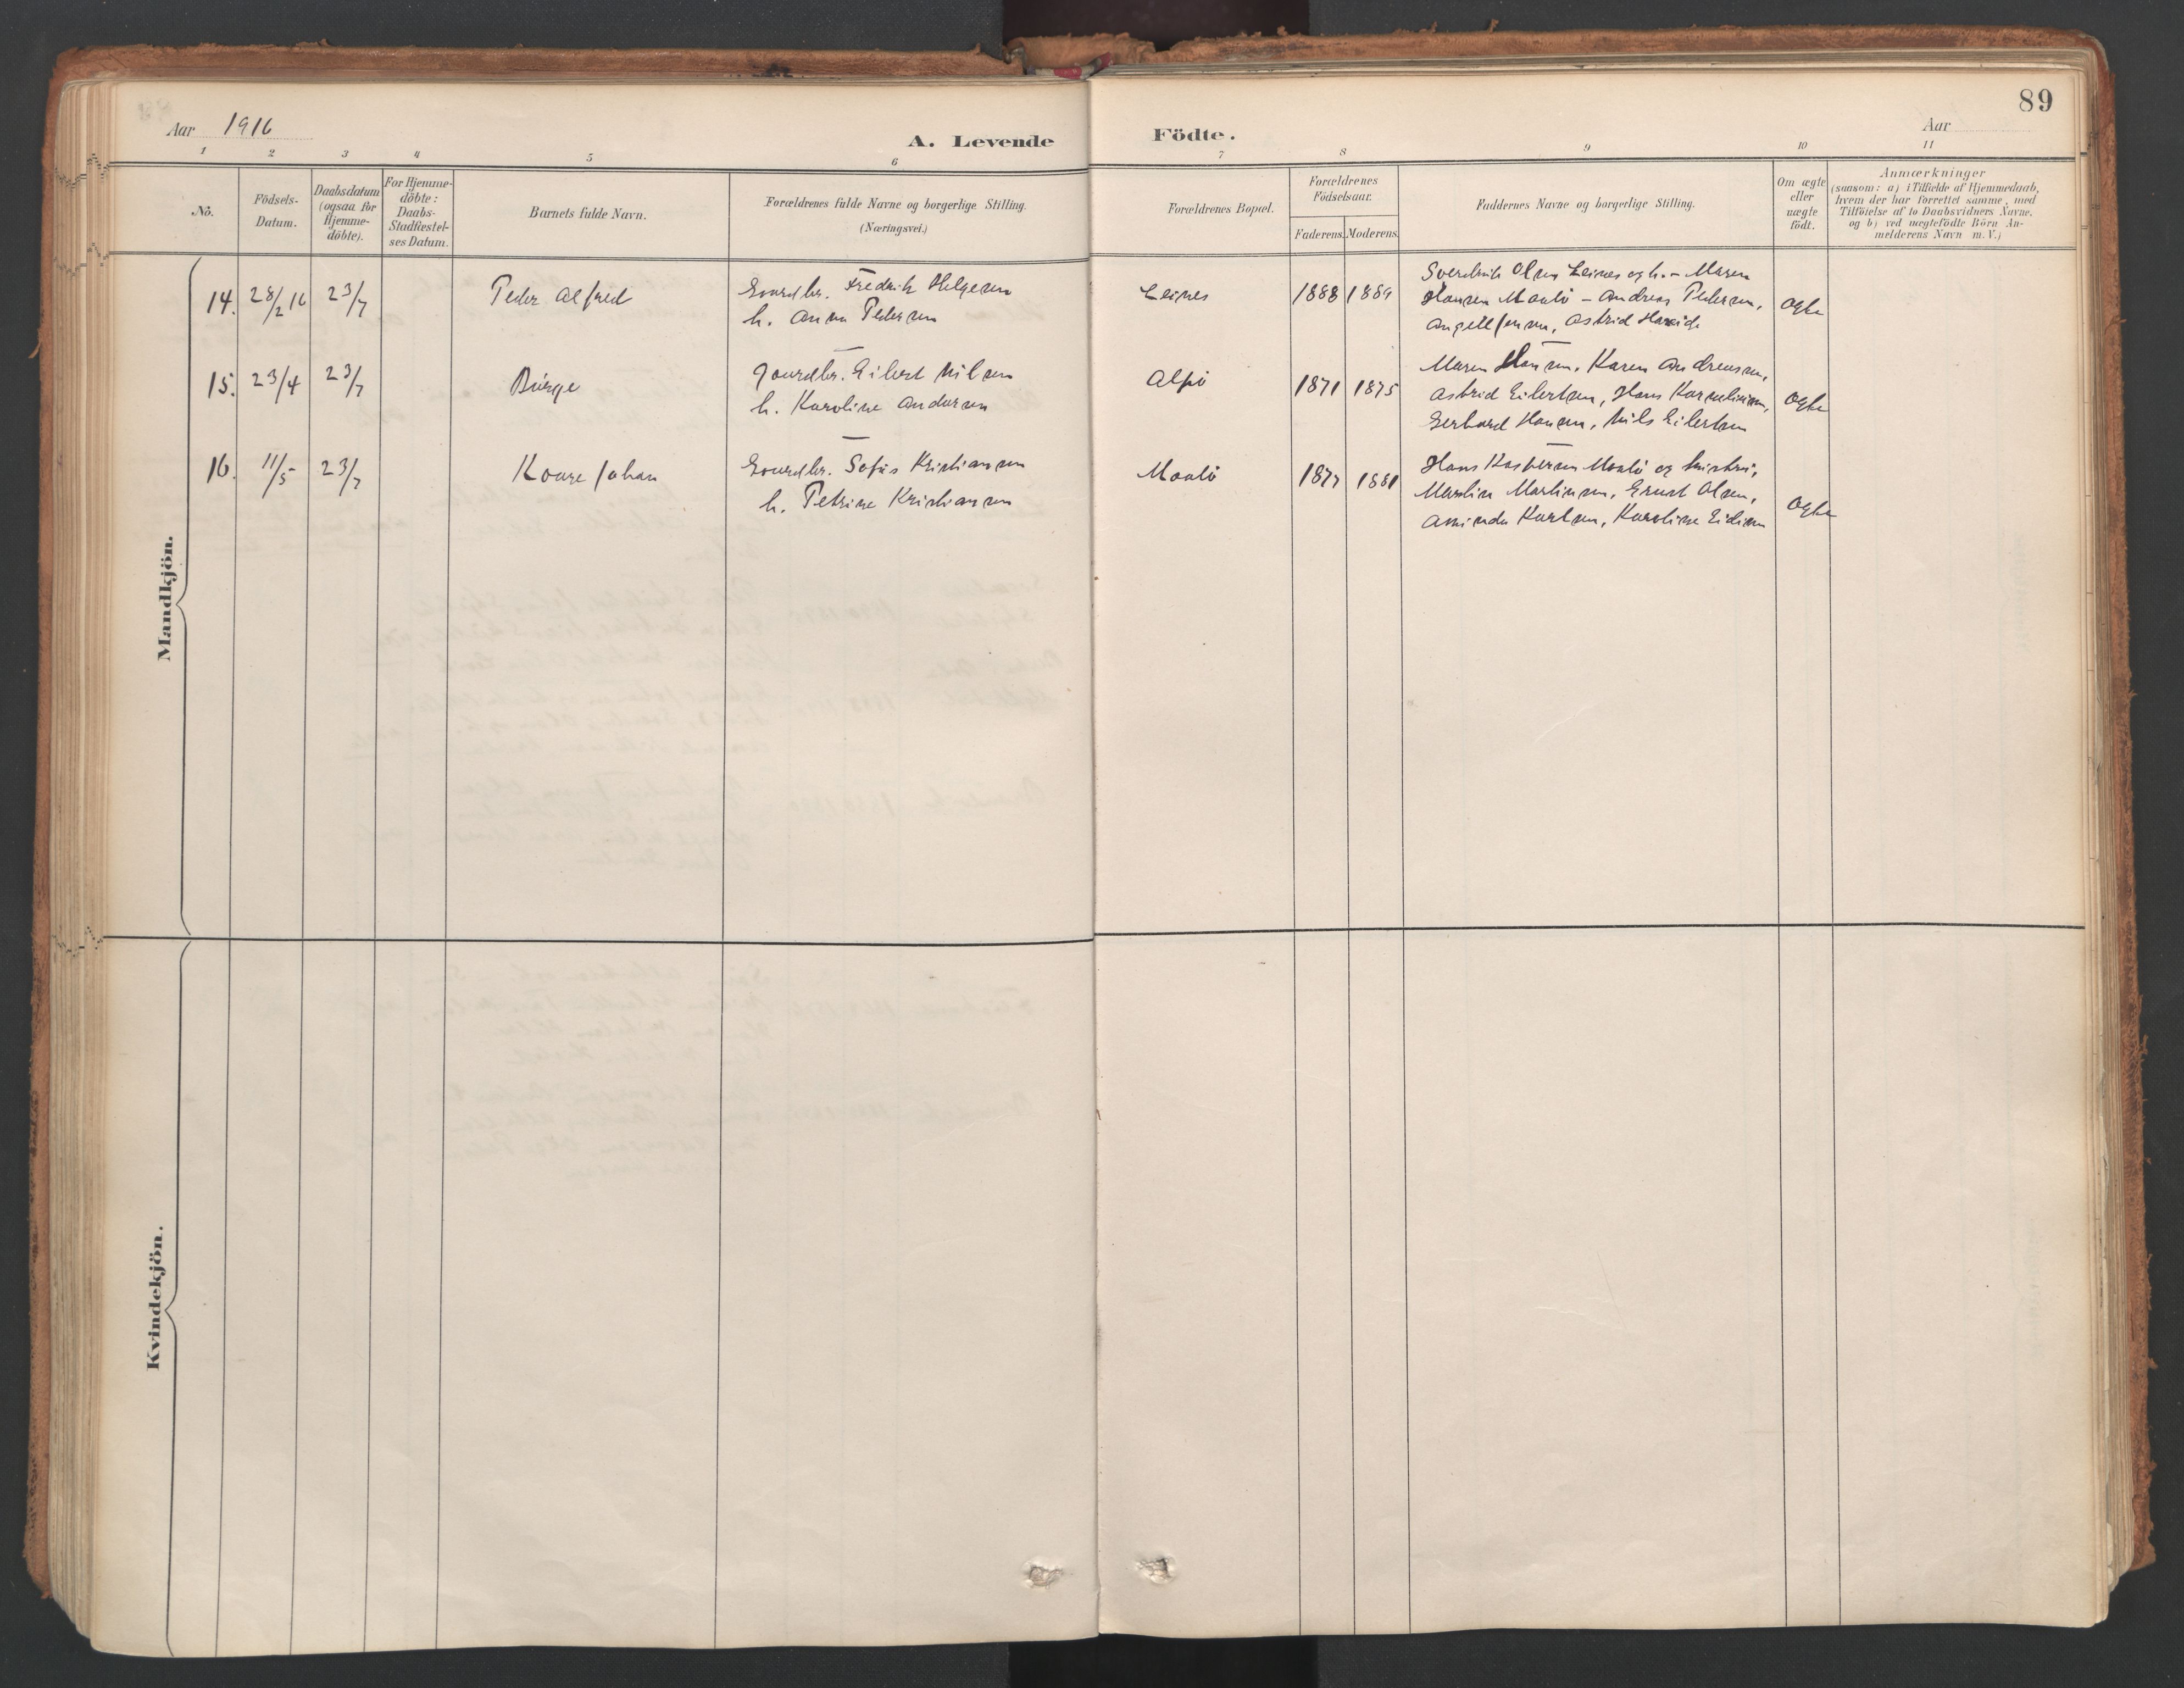 89
Aar 1916
A. Levende Födte.
Aar
1 2 3 4 5 6 7 8 9 10 11
No.
Födsels-
Datum.
Daabsdatum
(ogsaa for
Hjemme-
döbte).
For Hjemme-
döbte:
Daabs-
Stadfæstel-
ses Datum.
Barnets fulde Navn.
Forældrenes fulde Navne og borgerlige Stilling.
(Næringsvei.)
Forældrenes Bopæl.
Forældrenes
Födselsaar.
Faderens. Moderens.
Faddernes Navne og borgerlige Stilling.
Om ægte
eller
uægte
födt.
Anmærkninger
(saasom: a) i Tilfælde af Hjemmedaab,
hvem der har forrettet samme, med
Tilföielse af to Daabsvidners Navne.
og b) ved uægtefödte Börn An-
melderens Navn m. V.)
Mandkjön.
14. 28/2 16 23/7 Peder Alfred
Gaardbr. Fredrik Helgesen
h. Anna Pedersen
Leines 1888 1889
Olsen Leines og h. - Maren
Hansen Maalö - Andreas Pedersen,
Jensen, Astrid
Ogte
15. 23/4 23/7 Börge
Gaardbr. Eilert Nilsen
h. Karoline Andersen
Alpö 1871 1875
Maren Hansen, Karen Andreassen,
Astrid Eilertsen, Hans Korneliussen,
Gerhard Hansen, Nils Eilertsen
Ogte
16. 11/5 23/7 Kaare Johan
Gaardbr. Sofus Kristiansen
h. Petrine Kristiansen
Maalö 1877 1881
Hans Kaspersen Maalö og hustru,
Martin Martinsen, Ernst Olsen,
Aminda Karlsen, Karoline Eidissen
Ogte
Kvindekjön.